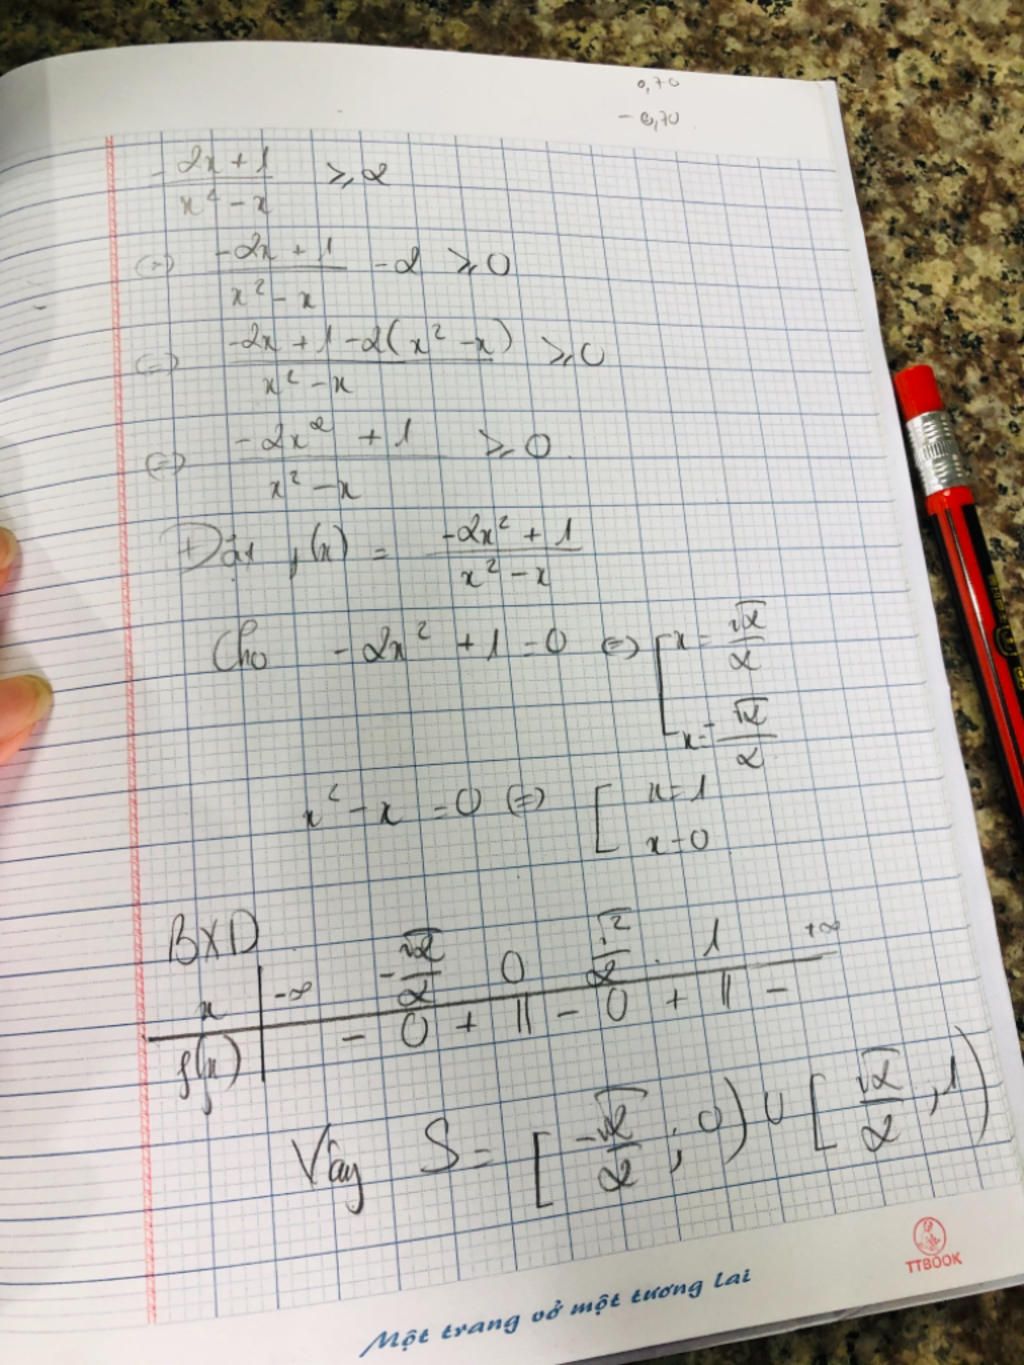 0,70
-0,70
-2x + 1 / x² - x ⩾ 2
(=) -2x + 1 / x² - x - 2 ⩾ 0
(=) -2x + 1 - 2(x² - x) / x² - x ⩾ 0
(=) -2x² + 1 / x² - x ⩾ 0
Đặt f(x) = -2x² + 1 / x² - x
Cho -2x² + 1 = 0 (=) [ x = √2 / 2
x = -√2 / 2
x² - x = 0 (=) [ x = 1
x = 0
BXD
x | -∞ -√2 / 2 0 √2 / 2 1 +∞
f(x) | - 0 + || - 0 + || -
Vậy S = [ -√2 / 2 ; 0 ) ∪ [ √2 / 2 , 1 )
TTBOOK
Một trang vở một tương lai